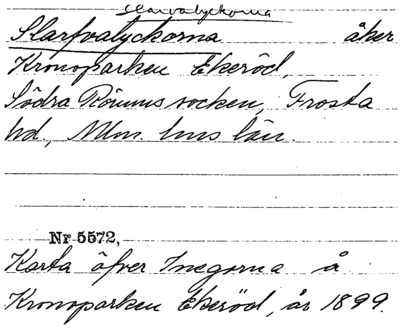 Slarvalyckorna
Slarfvalyckorna åker
Kronoparken Ekeröd,
Södra Rörums socken, Frosta
hd, Mlm. hus län.
Nr 5572,
Karta öfver Inegorna å
Kronoparken Ekeröd, år 1899.